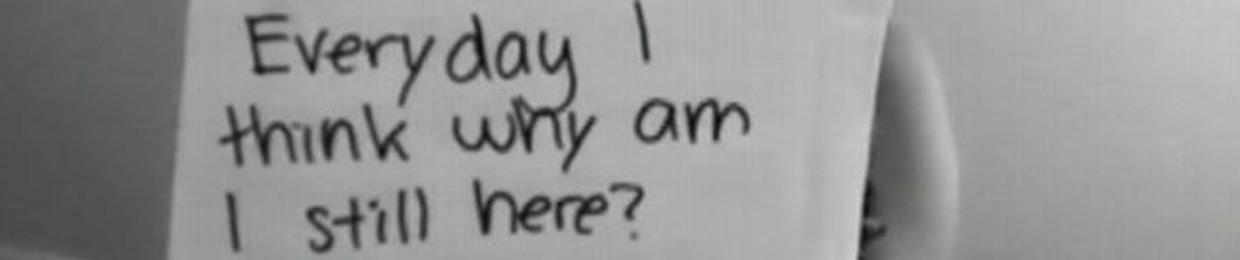 Everyday I
think why am
I still here?